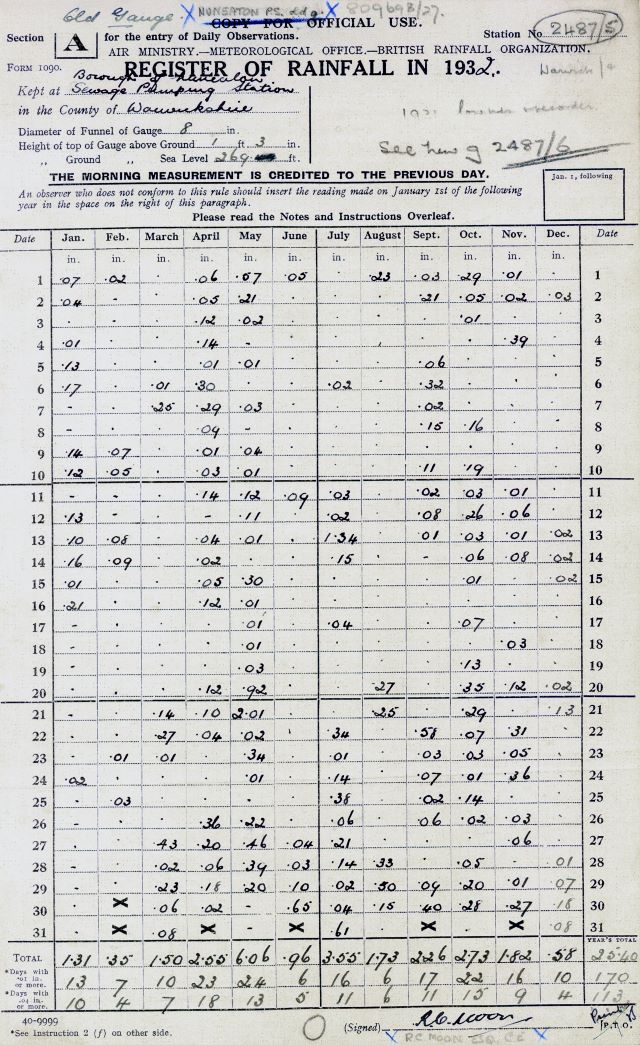 Old Gauge X NUNEATON P.S. Old g. X 809698/27.
COPY FOR OFFICIAL USE.
Section A for the entry of Daily Observations. Station No 2487/5
AIR MINISTRY.—METEOROLOGICAL OFFICE.—BRITISH RAINFALL ORGANIZATION.
FORM 1090. REGISTER OF RAINFALL IN 1932. Warwick/4
Borough of Nuneaton
Kept at Sewage Pumping Station
in the County of Warwickshire
Diameter of Funnel of Gauge 8 in.
Height of top of Gauge above Ground 1 ft 3 in.
„ Ground „ Sea Level 269 ft.
See new g 2487/6
THE MORNING MEASUREMENT IS CREDITED TO THE PREVIOUS DAY.
An observer who does not conform to this rule should insert the reading made on January 1st of the following
year in the space on the right of this paragraph.
Jan. 1, following
Please read the Notes and Instructions Overleaf.
Date Jan. Feb. March April May June July August Sept. Oct. Nov. Dec. Date
in. in. in. in. in. in. in. in. in. in. in. in.
1 .07 .02 . .06 .57 .05 . .23 .03 .29 .01 1
2 .04 - . .05 .21 . . . .21 .05 .02 .03 2
3 . . . .12 .02 . . . . .01 . 3
4 .01 . . .14 - . . . . . .39 4
5 .13 . . .01 .01 . . . .06 . . 5
6 .17 . .01 .30 . . .02 . .32 . . 6
7 - . .25 .29 .03 . . . .02 . . 7
8 . . . .09 - . . . .15 .16 . 8
9 .14 .07 . .01 .04 . . . . . . 9
10 .12 .05 . .03 .01 . . . .11 .19 . 10
11 - - . .14 .12 .09 .03 . .02 .03 .01 11
12 .13 . . - .11 . .02 . .08 .26 .06 12
13 .10 .08 . .04 .01 . 1.34 . .01 .03 .01 .02 13
14 .16 .09 . .02 . . .15 . - .06 .08 .02 14
15 .01 . . .05 .30 . . . . .01 . .02 15
16 .21 . . .12 .01 . . . . . . 16
17 - . . . .01 . .04 . . .07 . 17
18 . . . . .01 . . . . . .03 18
19 . . . . .03 . . . . .13 . 19
20 . . . .12 .92 . . .27 . .35 .12 .02 20
21 - . .14 .10 2.01 . . .25 . .29 . .13 21
22 - . .27 .04 .02 . .34 . .51 .07 .31 22
23 - .01 .01 . .34 . .01 . .03 .03 .05 23
24 .02 . . . .01 . .14 . .07 .01 .36 24
25 . .03 . . . . .38 . .02 .14 . 25
26 . . . .36 .22 . .06 . .06 .02 .03 26
27 . . .43 .20 .46 .04 .21 . . . .06 27
28 - . .02 .06 .39 .03 .14 .33 . .05 . .01 28
29 - . .23 .18 .20 .10 .02 .50 .09 .20 .01 .07 29
30 . X .06 .02 - .65 .04 .15 .40 .28 .27 .18 30
31 . X .08 X . X .61 . X . X .08 31
YEAR'S TOTAL
TOTAL 1.31 .35 1.50 2.55 6.06 .96 3.55 1.73 2.26 2.73 1.82 .58 25.40
*Days with .01 in. or more. 13 7 10 23 24 6 16 6 17 22 16 10 170
*Days with .04 in. or more. 10 4 7 18 13 5 11 6 11 15 9 4 113
40-9999
*See Instruction 2 (f) on other side. (Signed) R.C. Moon P.T.O.
X RC MOON ESQ. C.E X